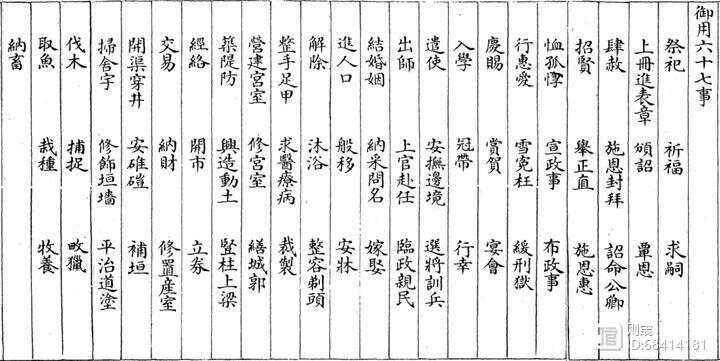 御用六十七事
祭祀 祈福 求嗣
上冊進表章 頒詔 覃恩
肆赦 施恩封拜 詔命公卿
招賢 舉正直 施恩惠
恤孤惸 宣政事 布政事
行惠愛 雪冤枉 緩刑獄
慶賜 賞賀 宴會
入學 冠帶 行幸
遣使 安撫邊境 選將訓兵
出師 上官赴任 臨政親民
結婚姻 納采問名 嫁娶
進人口 般移 安牀
解除 沐浴 整容剃頭
整手足甲 求醫療病 裁製
營建宮室 修宮室 繕城郭
築隄防 興造動土 豎柱上梁
經絡 開市 立券
交易 納財 修置產室
開渠穿井 安碓磑 補垣
掃舍宇 修飾垣墻 平治道塗
伐木 捕捉 畋獵
取魚 栽種 牧養
納畜
ID:68414181